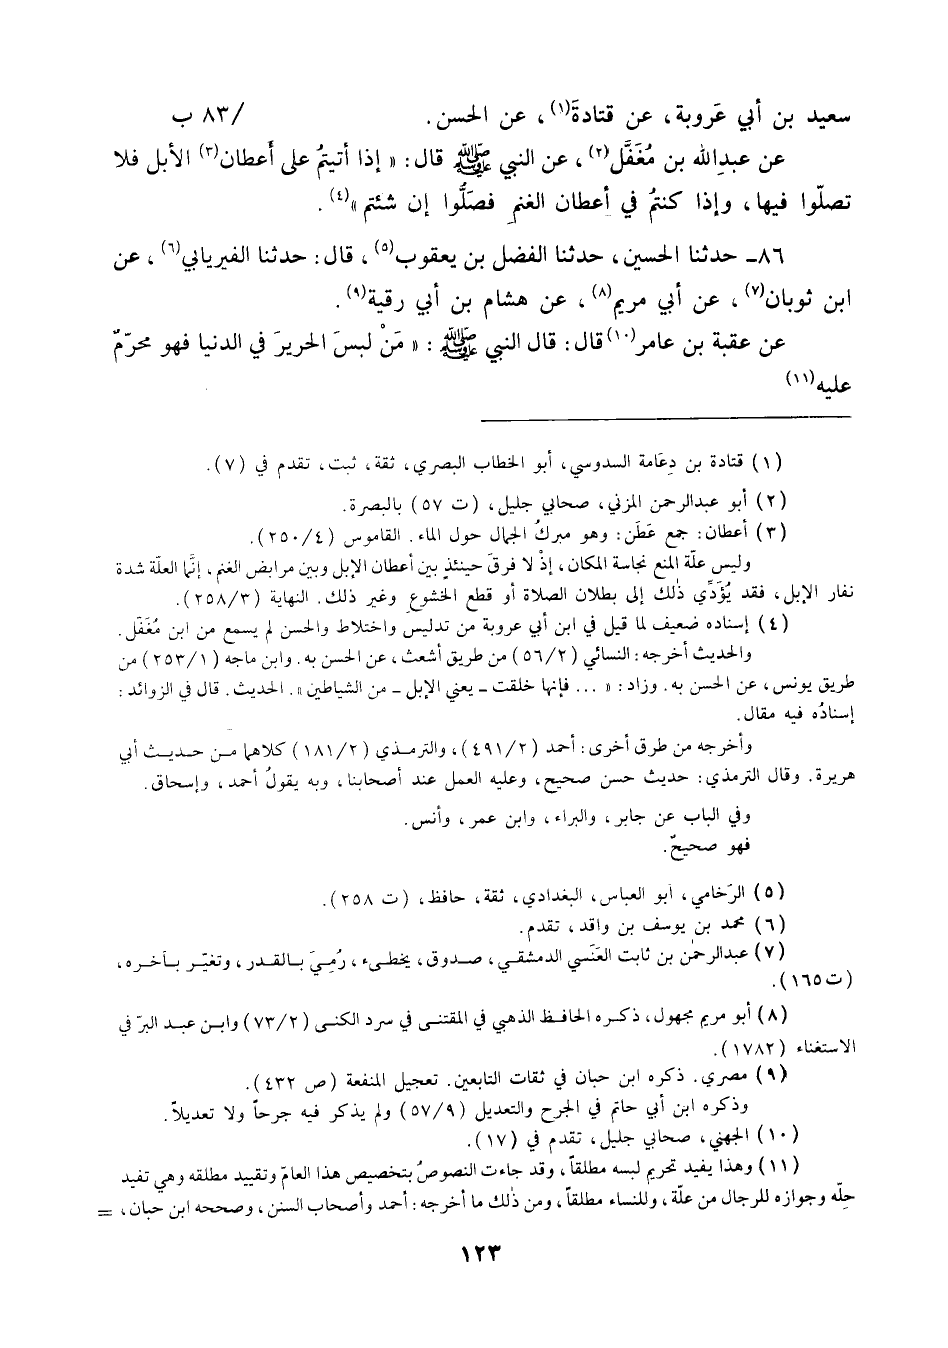 سعيد بن أبي عَروبة، عن قتادةَ(١)، عن الحسن. /٨٣ ب
عن عبدالله بن مُغَفَّل(٢)، عن النبي ﷺ قال: « إذا أتيتمُ على أَعطان(٣) الأبل فلا
تصلّوا فيها، وإذا كنتمُ في أعطان الغنمِ فصَلُّوا إن شئتم »(٤).
٨٦ـ حدثنا الحسين، حدثنا الفضل بن يعقوب(٥)، قال: حدثنا الفيريابي(٦)، عن
ابن ثوبان(٧)، عن أبي مريم(٨)، عن هشام بن أبي رقية(٩).
عن عقبة بن عامر(١٠) قال: قال النبي ﷺ: « مَنْ لبسَ الحريرَ في الدنيا فهو محرّمٌ
عليه(١١)
(١) قتادة بن دِعَامة السدوسي، أبو الخطاب البصري، ثقة، ثبت، تقدم في (٧).
(٢) أبو عبدالرحمن المزني، صحابي جليل، (ت ٥٧) بالبصرة.
(٣) أعطان: جمع عَطَن: وهو مبركُ الجمال حول الماء. القاموس (٢٥٠/٤).
وليس علّة المنع نجاسة المكان، إذْ لا فرقَ حينئذٍ بين أعطان الإبل وبين مرابض الغنم، إنَّما العلّة شدة
نفار الإبل، فقد يُؤَدِّي ذلك إلى بطلان الصلاة أو قطع الخشوعِ وغير ذلك. النهاية (٢٥٨/٣).
(٤) إسناده ضعيف لما قيل في ابن أبي عروبة من تدليس واختلاط والحسن لم يسمع من ابن مُغَفَل.
والحديث أخرجه: النسائي (٥٦/٢) من طريق أشعث، عن الحسن به. وابن ماجه (٢٥٣/١) من
طريق يونس، عن الحسن به. وزاد: « ... فإنها خلقت ـ يعني الإبل ـ من الشياطين ». الحديث. قال في الزوائد:
إسنادُه فيه مقال.
وأخرجه من طرق أخرى: أحمد (٤٩١/٢)، والترمذي (١٨١/٢) كلاهما من حديث أبي
هريرة. وقال الترمذي: حديث حسن صحيح، وعليه العمل عند أصحابنا، وبه يقولُ أحمد، وإسحاق.
وفي الباب عن جابر، والبراء، وابن عمر، وأنس.
فهو صحيحٌ.
(٥) الرَخامي، أبو العباس، البغدادي، ثقة، حافظ، (ت ٢٥٨).
(٦) محمد بن يوسف بن واقد، تقدم.
(٧) عبدالرحمٰن بن ثابت العَنَسي الدمشقي، صدوق، يخطىء، رُمِيَ بالقدر، وتغيّر بآخره،
(ت ١٦٥).
(٨) أبو مريم مجهول، ذكره الحافظ الذهبي في المقتنى في سرد الكنى (٧٣/٢) وابن عبد البرّ في
الاستغناء (١٧٨٢).
(٩) مصري. ذكره ابن حبان في ثقات التابعين. تعجيل المنفعة (ص ٤٣٢).
وذكره ابن أبي حاتم في الجرح والتعديل (٥٧/٩) ولم يذكر فيه جرحاً ولا تعديلاً.
(١٠) الجهني، صحابي جليل، تقدم في (١٧).
(١١) وهذا يفيد تحريم لبسه مطلقاً، وقد جاءت النصوصُ بتخصيص هذا العامّ وتقييد مطلقه وهي تفيد
حِلّه وجوازه للرجال من علّة، وللنساء مطلقاً، ومن ذٰلك ما أخرجه: أحمد وأصحاب السنن، وصححه ابن حبان، =
١٢٣